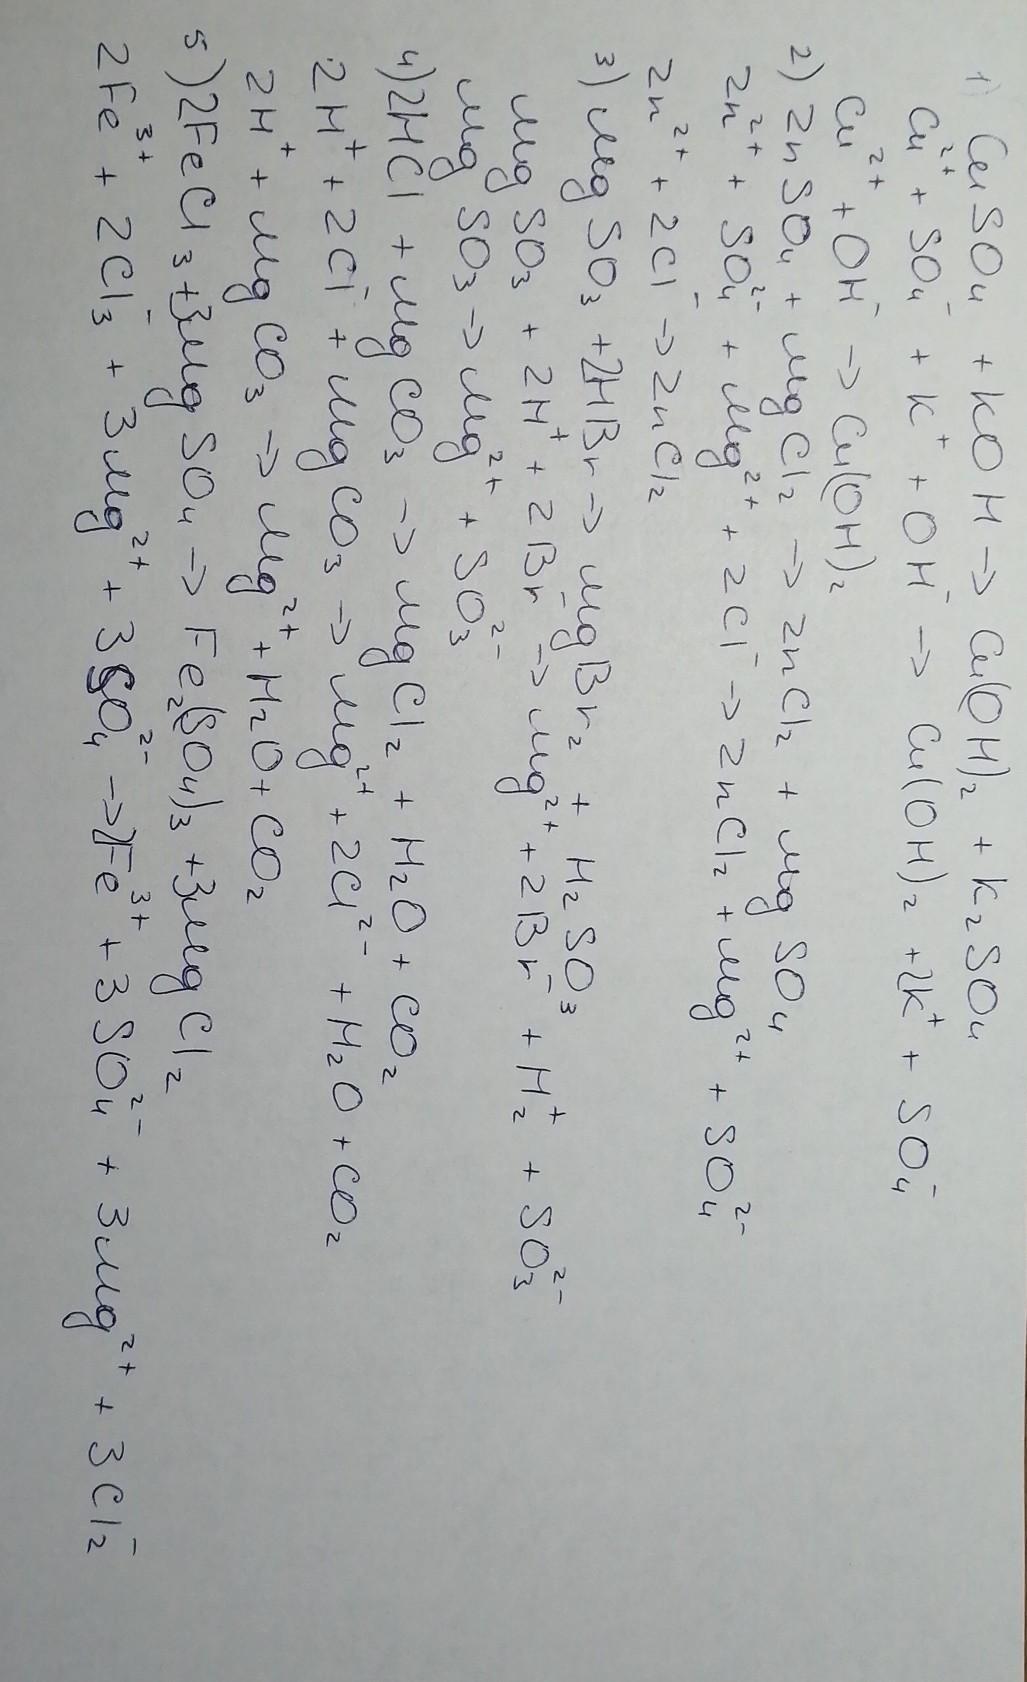 1) CuSO₄ + KOH → Cu(OH)₂ + K₂SO₄
Cu²⁺ + SO₄⁻ + K⁺ + OH⁻ → Cu(OH)₂ + 2K⁺ + SO₄⁻
Cu²⁺ + OH⁻ → Cu(OH)₂
2) ZnSO₄ + MgCl₂ → ZnCl₂ + MgSO₄
Zn²⁺ + SO₄²⁻ + Mg²⁺ + 2Cl⁻ → ZnCl₂ + Mg²⁺ + SO₄²⁻
Zn²⁺ + 2Cl⁻ → ZnCl₂
3) MgSO₃ + 2HBr → MgBr₂ + H₂SO₃
MgSO₃ + 2H⁺ + 2Br⁻ → Mg²⁺ + 2Br⁻ + H₂⁺ + SO₃²⁻
MgSO₃ → Mg²⁺ + SO₃²⁻
4) 2HCl + MgCO₃ → MgCl₂ + H₂O + CO₂
2H⁺ + 2Cl⁻ + MgCO₃ → Mg²⁺ + 2Cl²⁻ + H₂O + CO₂
2H⁺ + MgCO₃ → Mg²⁺ + H₂O + CO₂
5) 2FeCl₃ + 3MgSO₄ → Fe₂(SO₄)₃ + 3MgCl₂
2Fe³⁺ + 2Cl₃⁻ + 3Mg²⁺ + 3SO₄²⁻ → 2Fe³⁺ + 3SO₄²⁻ + 3Mg²⁺ + 3Cl₂⁻